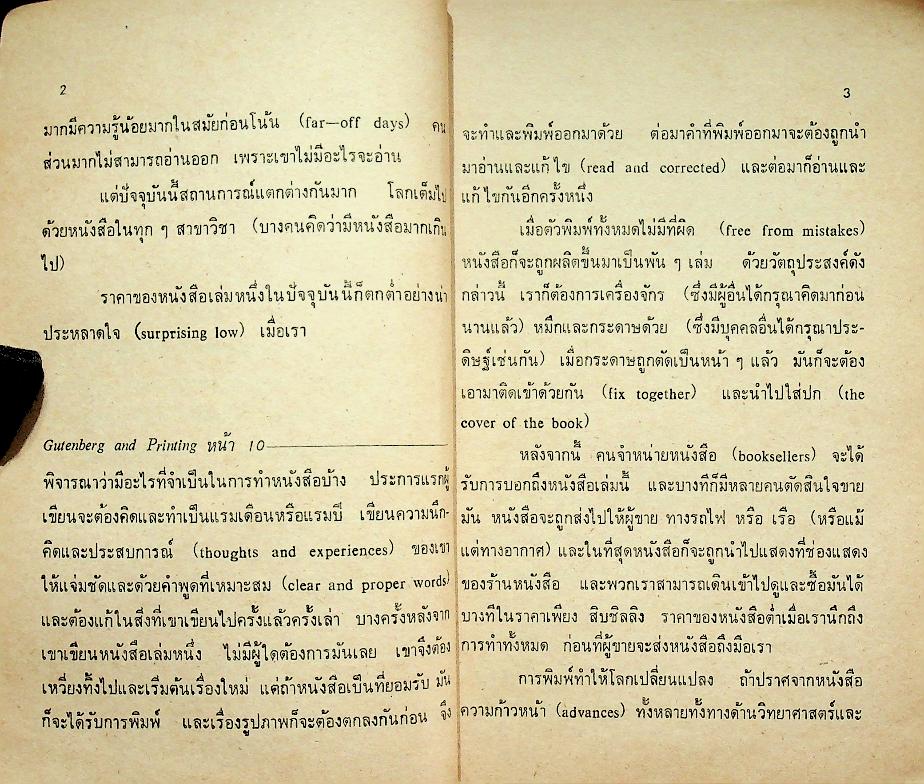 2
มากมีความรู้น้อยมากในสมัยก่อนโน้น (far—off days) คน
ส่วนมากไม่สามารถอ่านออก เพราะเขาไม่มีอะไรจะอ่าน
แต่ปัจจุบันนี้สถานการณ์แตกต่างกันมาก โลกเต็มไป
ด้วยหนังสือในทุก ๆ สาขาวิชา (บางคนคิดว่ามีหนังสือมากเกิน
ไป)
ราคาของหนังสือเล่มหนึ่งในปัจจุบันนี้ก็ตกต่ำอย่างน่า
ประหลาดใจ (surprising low) เมื่อเรา
Gutenberg and Printing หน้า 10
พิจารณาว่ามีอะไรที่จำเป็นในการทำหนังสือบ้าง ประการแรกผู้
เขียนจะต้องคิดและทำเป็นแรมเดือนหรือแรมปี เขียนความนึก-
คิดและประสบการณ์ (thoughts and experiences) ของเขา
ให้แจ่มชัดและด้วยคำพูดที่เหมาะสม (clear and proper words)
และต้องแก้ในสิ่งที่เขาเขียนไปครั้งแล้วครั้งเล่า บางครั้งหลังจาก
เขาเขียนหนังสือเล่มหนึ่ง ไม่มีผู้ใดต้องการมันเลย เขาจึงต้อง
เหวี่ยงทิ้งไปและเริ่มต้นเรื่องใหม่ แต่ถ้าหนังสือเป็นที่ยอมรับ มัน
ก็จะได้รับการพิมพ์ และเรื่องรูปภาพก็จะต้องตกลงกันก่อน จึง
3
จะทำและพิมพ์ออกมาด้วย ต่อมาคำที่พิมพ์ออกมาจะต้องถูกนำ
มาอ่านและแก้ไข (read and corrected) และต่อมาก็อ่านและ
แก้ไขกันอีกครั้งหนึ่ง
เมื่อตัวพิมพ์ทั้งหมดไม่มีที่ผิด (free from mistakes)
หนังสือก็จะถูกผลิตขึ้นมาเป็นพัน ๆ เล่ม ด้วยวัตถุประสงค์ดัง
กล่าวนี้ เราก็ต้องการเครื่องจักร (ซึ่งมีผู้อื่นได้กรุณาคิดมาก่อน
นานแล้ว) หมึกและกระดาษด้วย (ซึ่งมีบุคคลอื่นได้กรุณาประ-
ดิษฐ์เช่นกัน) เมื่อกระดาษถูกตัดเป็นหน้า ๆ แล้ว มันก็จะต้อง
เอามาติดเข้าด้วยกัน (fix together) และนำไปใส่ปก (the
cover of the book)
หลังจากนี้ คนจำหน่ายหนังสือ (booksellers) จะได้
รับการบอกถึงหนังสือเล่มนี้ และบางทีก็มีหลายคนตัดสินใจขาย
มัน หนังสือจะถูกส่งไปให้ผู้ขาย ทางรถไฟ หรือ เรือ (หรือแม้
แต่ทางอากาศ) และในที่สุดหนังสือก็จะถูกนำไปแสดงที่ช่องแสดง
ของร้านหนังสือ และพวกเราสามารถเดินเข้าไปดูและซื้อมันได้
บางทีในราคาเพียง สิบชิลลิง ราคาของหนังสือต่ำเมื่อเรานึกถึง
การทำทั้งหมด ก่อนที่ผู้ขายจะส่งหนังสือถึงมือเรา
การพิมพ์ทำให้โลกเปลี่ยนแปลง ถ้าปราศจากหนังสือ
ความก้าวหน้า (advances) ทั้งหลายทั้งทางด้านวิทยาศาสตร์และ